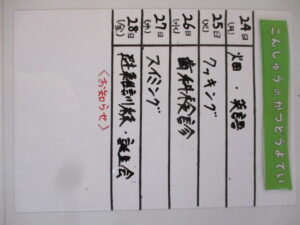 こんしゅうのかつどうよてい
24(月) 畑・英語
25(火) クッキング
26(水) 歯科検診
27(木) スイミング
28(金) 避難訓練・誕生会
<お知らせ>